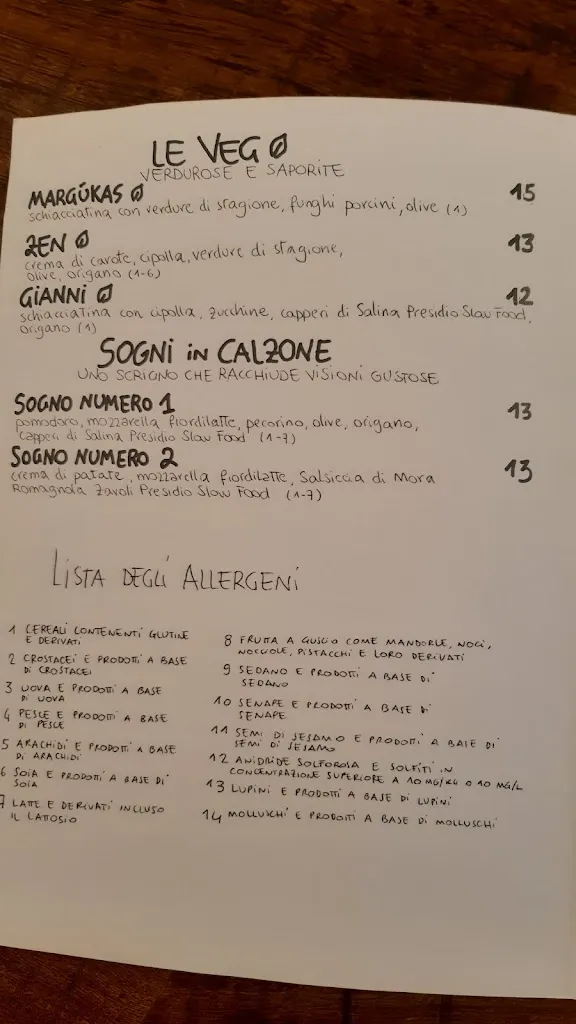 LE VEG
VERDUROSE E SAPORITE
MARGÚKAS 15
schiacciatina con verdure di stagione, funghi porcini, olive (1)
ZEN 13
crema di carote, cipolla, verdure di stagione,
olive, origano (1-6)
GIANNI 12
schiacciatina con cipolla, zucchine, capperi di Salina Presidio Slow Food,
origano (1)
SOGNI in CALZONE
UNO SCRIGNO CHE RACCHIUDE VISIONI GUSTOSE
SOGNO NUMERO 1 13
pomodoro, mozzarella fiordilatte, pecorino, olive, origano,
capperi di Salina Presidio Slow Food (1-7)
SOGNO NUMERO 2 13
crema di patate, mozzarella fiordilatte, Salsiccia di Mora
Romagnola Zavoli Presidio Slow Food (1-7)
LISTA DEGLI ALLERGENI
1 CEREALI CONTENENTI GLUTINE
E DERIVATI
2 CROSTACEI E PRODOTTI A BASE
DI CROSTACEI
3 UOVA E PRODOTTI A BASE
DI UOVA
4 PESCE E PRODOTTI A BASE
DI PESCE
5 ARACHIDI E PRODOTTI A BASE
DI ARACHIDI
6 SOIA E PRODOTTI A BASE DI
SOIA
7 LATTE E DERIVATI INCLUSO
IL LATTOSIO
8 FRUTTA A GUSCIO COME MANDORLE, NOCI,
NOCCIOLE, PISTACCHI E LORO DERIVATI
9 SEDANO E PRODOTTI A BASE DI
SEDANO
10 SENAPE E PRODOTTI A BASE DI
SENAPE
11 SEMI DI SESAMO E PRODOTTI A BASE DI
SEMI DI SESAMO
12 ANIDRIDE SOLFOROSA E SOLFITI IN
CONCENTRAZIONE SUPERIORE A 10 MG/KG O 10 MG/L
13 LUPINI E PRODOTTI A BASE DI LUPINI
14 MOLLUSCHI E PRODOTTI A BASE DI MOLLUSCHI